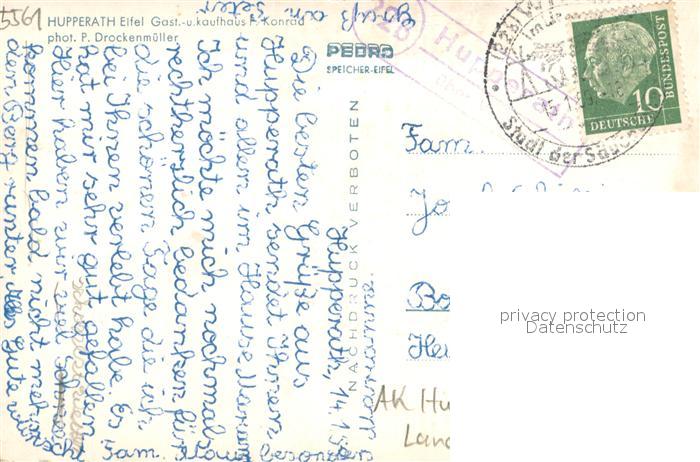 5561
HUPPERATH Eifel Gast.-u.kaufhaus P. Konrad
phot. P. Drockenmüller
PEDRO
SPEICHER-EIFEL
NACHDRUCK VERBOTEN
Hupperath, 14.1.5
Die besten Grüße aus
Hupperath sendet Ihnen
und allen im Hause Marianne.
Ich möchte mich nochmal
recht herzlich bedanken für
die schönen Tage die ich
bei Ihnen verlebt habe. Es
hat mir sehr gut gefallen.
Hier haben wir viel
kommen bald nicht mehr
den Berg runter. Alles Gute
Fam. besonders
Gruß an
22b
Hupperath
über
(22b) WITTLICH
Stadt der Säubrenner
DEUTSCHE
BUNDESPOST
10
Fam.
Jo
Bo
Hei
privacy protection
Datenschutz
AK Hu
Land